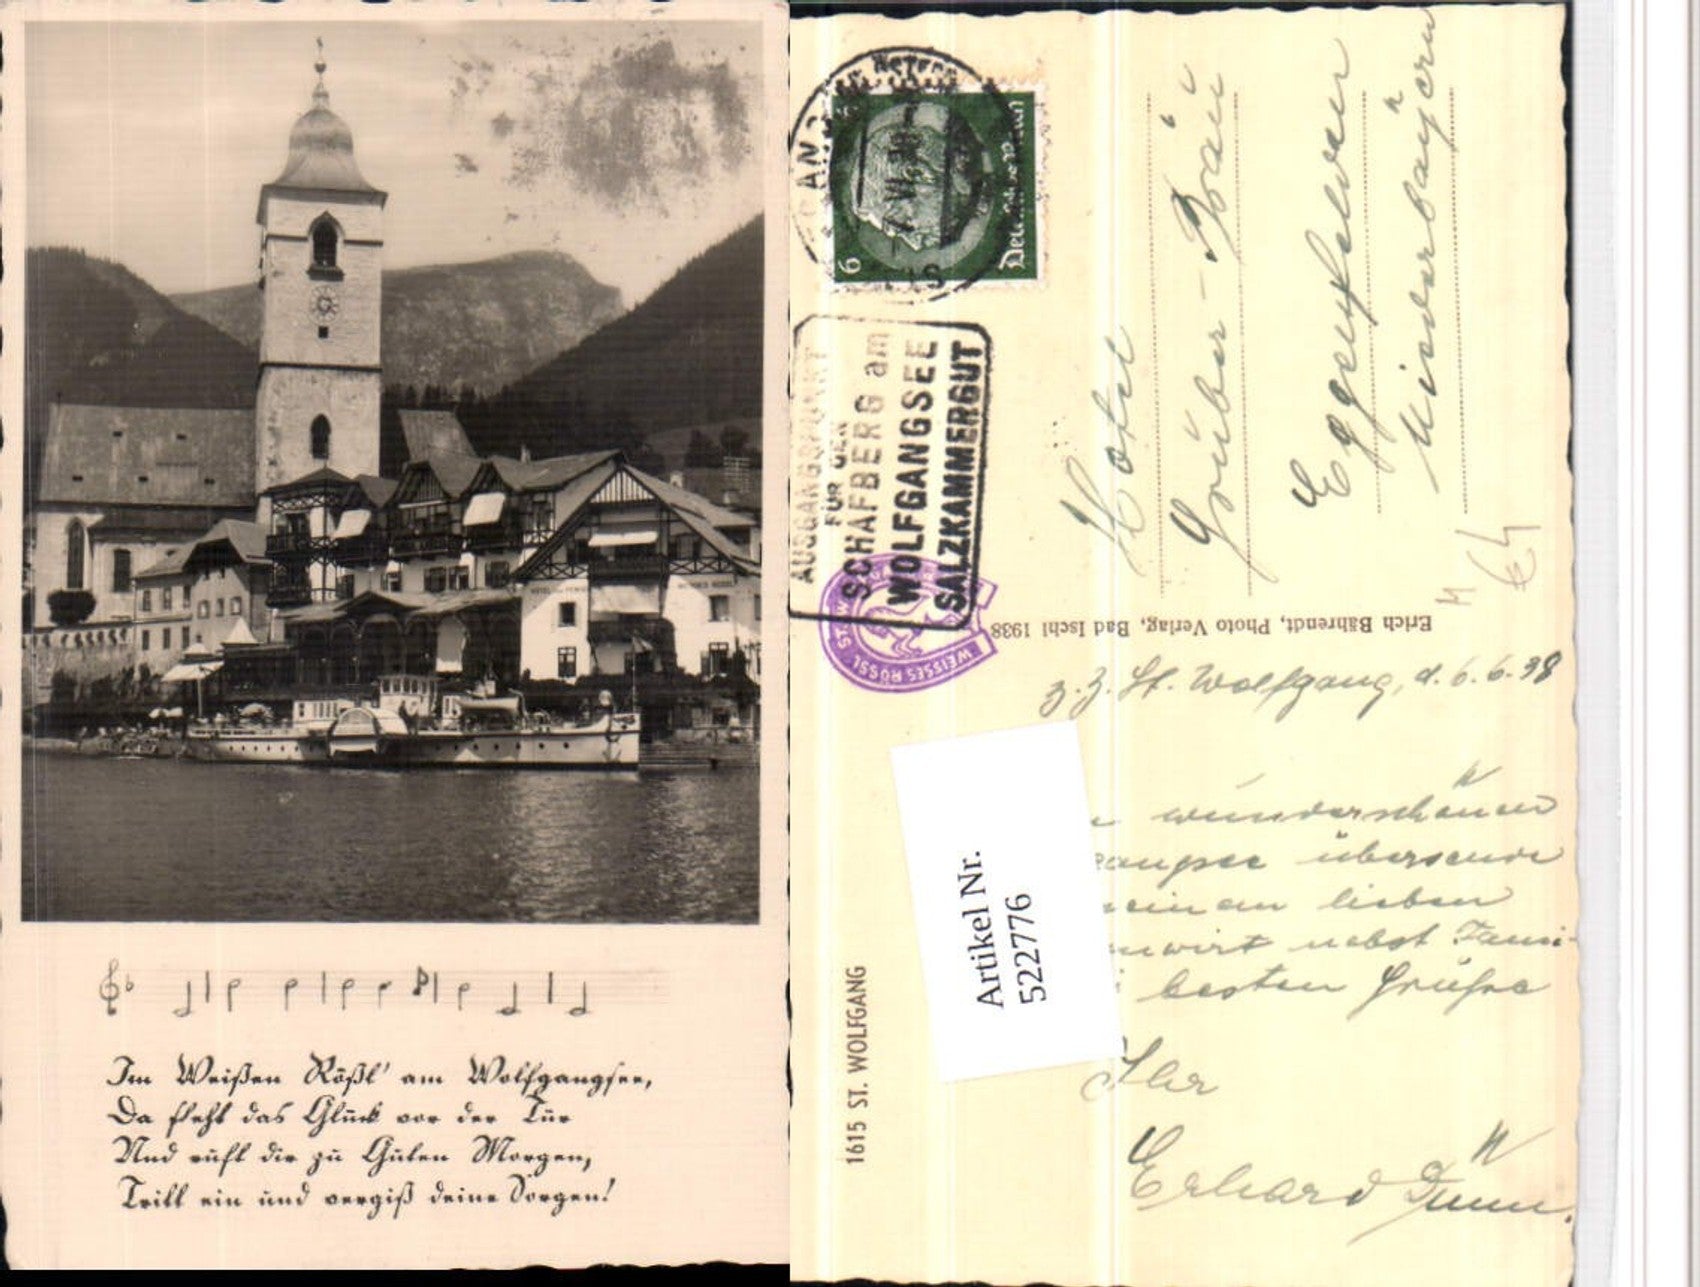 Im Weißen Rößl' am Wolfgangsee,
Da steht das Glück vor der Tür
Und ruft dir zu Guten Morgen,
Tritt ein und vergiß deine Sorgen!
6
Deutsches Reich
7. VI. 38
AUSGANGSPUNKT
FÜR DEN
SCHAFBERG am
WOLFGANGSEE
SALZKAMMERGUT
WEISSES RÖSSL
Hotel
Gruber-Bräu
Eggenfelden
Niederbayern
Erich Bährendt, Photo Verlag, Bad Ischl 1938
z. Z. St. Wolfgang, d. 6.6.38
wunderschönen
übersende
lieben
nebst Fami-
besten Grüße
Ihr
Erhard
Artikel Nr.
522776
1615 ST. WOLFGANG